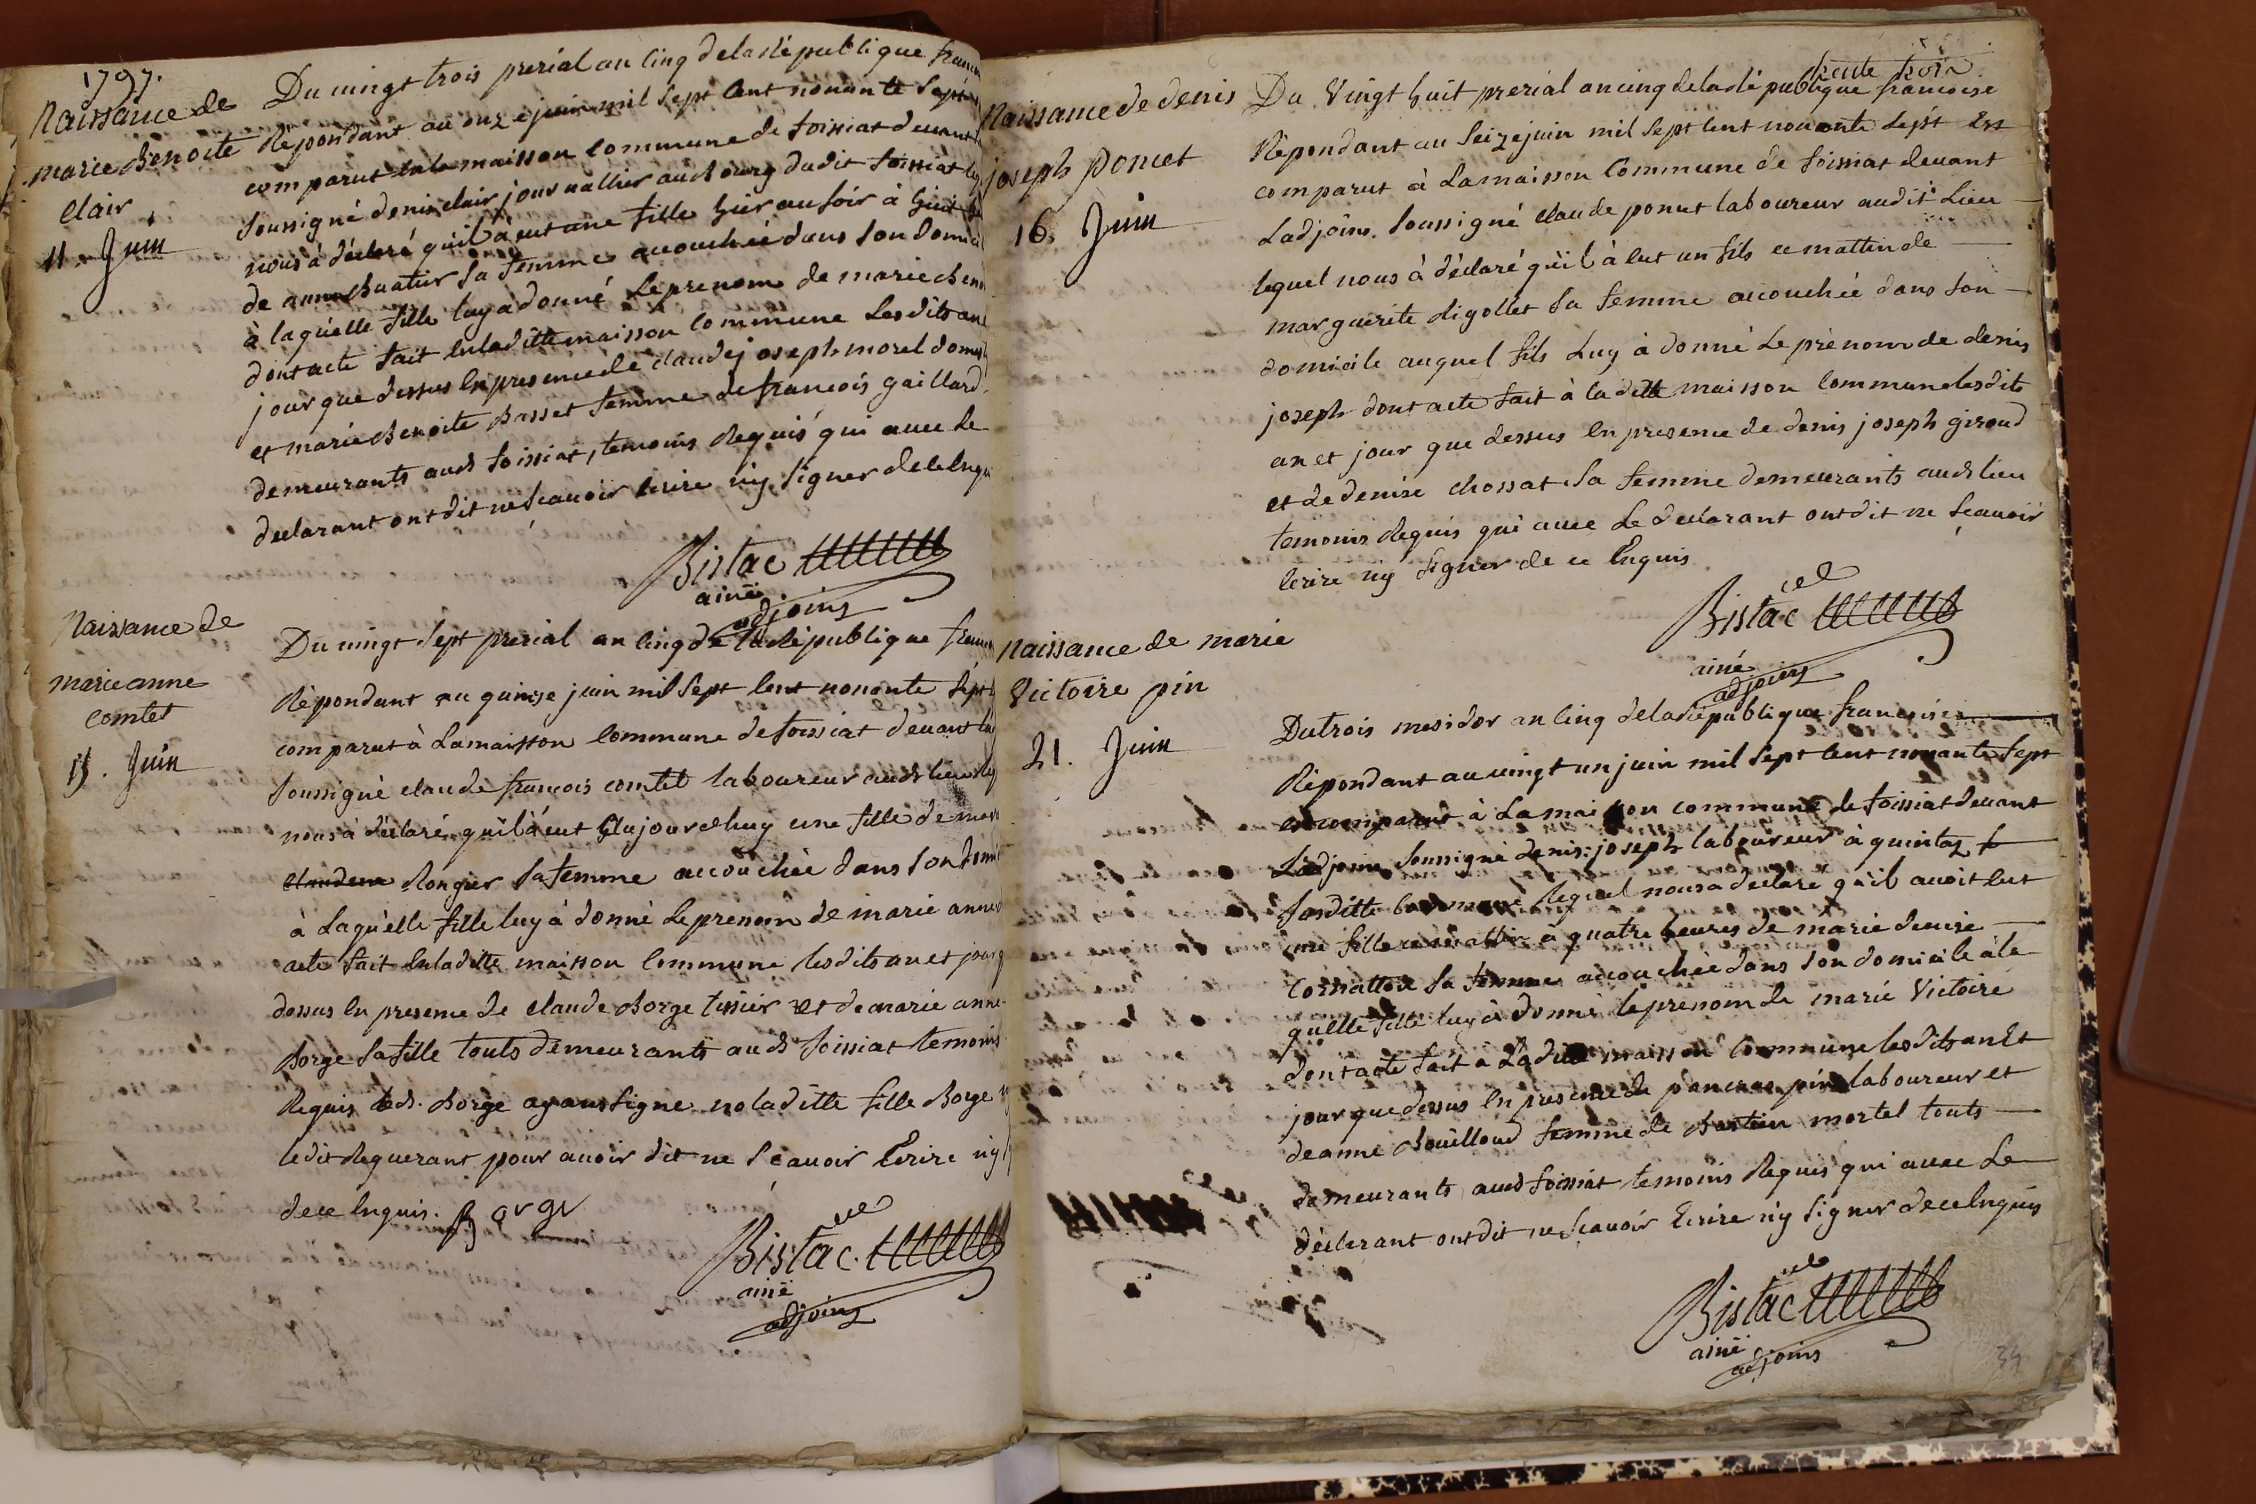 1797.
Naissance de
marie Benoite
Clair
11. Juin
Du vingt trois prerial an cinq de la Republique
Répondant au onze juin mil sept cent nonante sept
comparut en la maisson commune de foissiat devant
soussigné denis clair journallier au bourg dudit foissiat
nous à déclaré qu'il à eut une fille hier au soir à huit
de anne buatier sa femme accouchée dans son
à laquelle fille luy a donné le prenom de marie
dont acte fait en laditte maisson commune lesdits an
jour que dessus en presence de claude joseph morel
et marie Benoite Basset femme de francois gaillard
demeurants aud foissiat, temoins Requis qui avec le
declarant ont dit ne scavoir écrire ny signer de ce
Bistac
ainé
adjoins
Naissance de
marie anne
comtet
15. Juin
Du vingt sept prerial an cinq de la Republique
Répondant au quinze juin mil sept cent nonante sept
comparut à la maisson commune de foissiat devant
soussigné claude francois comtet laboureur aud lieu
nous à déclaré qu'il à eut aujourdhuy une fille de
Rongier sa femme accouchée dans son
à laquelle fille luy à donné le prenom de marie anne
acte fait en laditte maisson commune lesdits an et jour
dessus en presence de claude Borge tissier et de marie anne
Borge sa fille touts demeurants aud foissiat temoins
Requis led. Borge ayant signe no laditte fille Borge
ledit Requerant pour avoir dit ne scavoir Ecrire ny
de ce Enquis. Borge
Bistac
ainé
adjoins
trente trois
Naissance de denis
joseph poncet
16. Juin
Du Vingt huit prerial an cinq de la Republique francoise
Répondant au seize juin mil sept cent nonante sept Est
comparut à la maisson Commune de foissiat devant
Ladjoins soussigné claude poncet laboureur audit Lieu
lequel nous à déclaré qu'il à eut un fils ce mattin de
marguerite Rigollet sa femme accouchée dans son
domicile auquel fils luy à donné le prénom de denis
joseph dont acte fait à laditte maisson commune lesdits
an et jour que dessus en presence de denis joseph giroud
et de denise chossat sa femme demeurants aud lieu
temoins Requis qui avec le declarant ont dit ne scavoir
ecrire ny signer de ce Enquis
Bistac
ainé
adjoins
Naissance de marie
Victoire pin
21. Juin
Du trois mesidor an cinq de la Republique francoise
Répondant au vingt un juin mil sept cent nonante sept
est comparut à la maisson commune de foissiat devant
Ladjoins soussigné denis joseph laboureur à
lequel nous a declaré qu'il avoit eut
une fille ce mattin à quatre heures de marie denise
sa femme accouchée dans son domicile à la
quelle fille luy à donné le prenom de marie Victoire
dont acte fait à laditte maisson commune lesdits an Et
jour que dessus en presence de pancrace pin laboureur et
de anne Bouilloud femme de mortel touts
demeurants aud foissiat temoins Requis qui avec le
déclarant ont dit ne scavoir Ecrire ny signer de ce Enquis
Bistac
ainé
adjoins
34